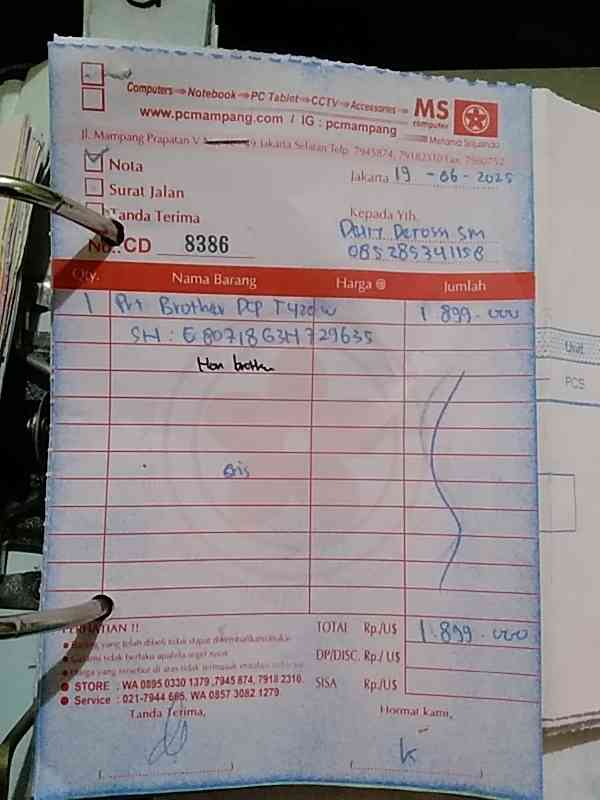 Computers Notebook PC Tablet CCTV Accessories MS
computer
www.pcmampang.com / IG : pcmampang
Metama Sejuanda
Jl. Mampang Prapatan V Jakarta Selatan Telp. 7945874, 79182310 Fax. 7980752
Nota
Jakarta 19 - 06 - 2025
Surat Jalan
Tanda Terima
Kepada Yth.
Derossi SM
No.: CD 8386
085285341158
Qty. Nama Barang Harga @ Jumlah
1 Prt Brother DCP T420W 1.899.000
SN : E80718G3H729635
Hon brother
Unit
PCS
aris
PERHATIAN !!
TOTAL Rp./U$ 1.899.000
Barang yang telah dibeli tidak dapat dikembalikan/ditukar
Garansi tidak berlaku apabila segel rusak
DP/DISC. Rp./ U$
Harga yang tersebut di atas tidak termasuk instalasi software
STORE : WA 0895 0330 1379 ,7945 874, 7918 2310.
SISA Rp./U$
Service : 021-7944 665, WA 0857 3082 1279.
Tanda Terima, Hormat kami,